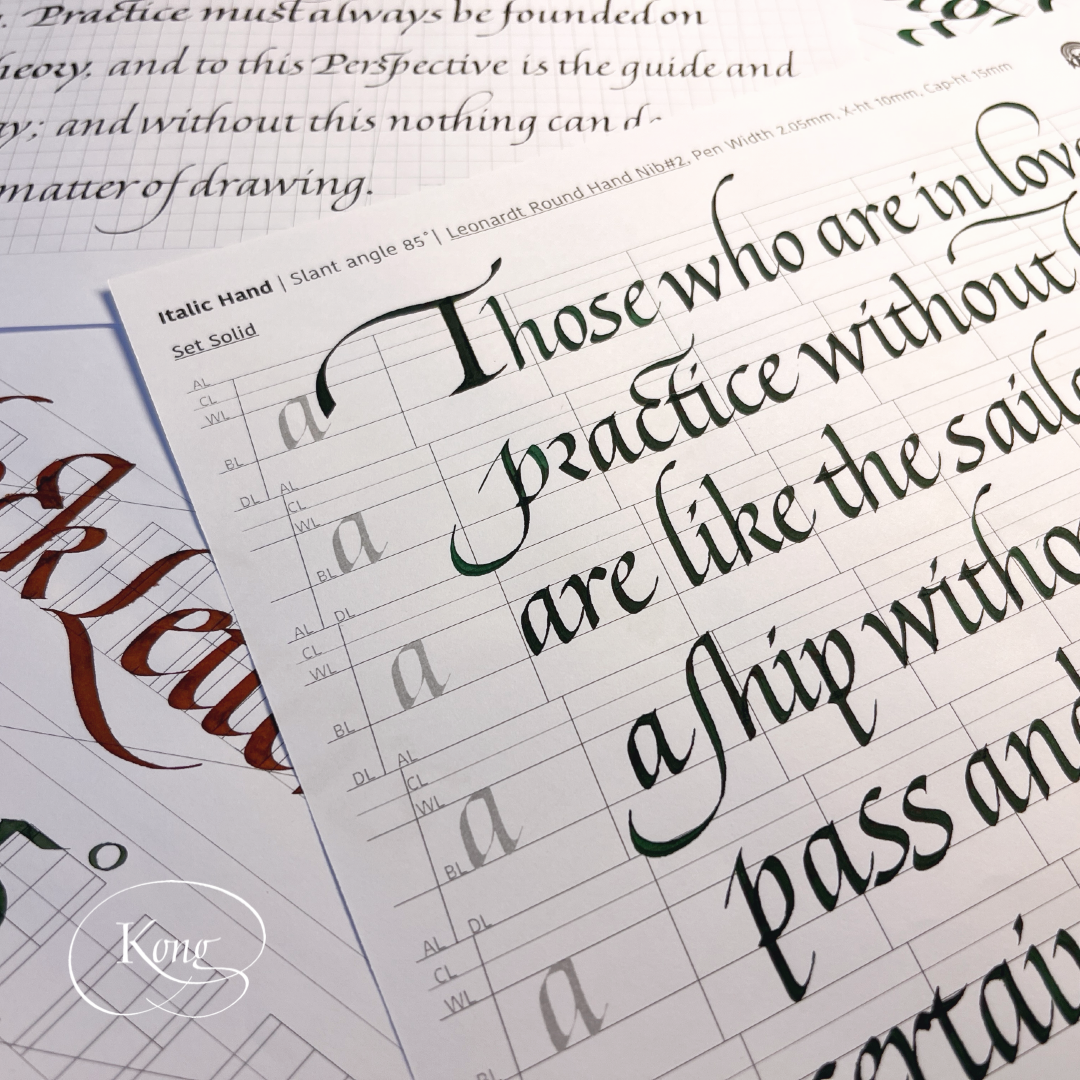 . Practice must always be founded on
heory. and to this Perspective is the guide and
ay; and without this nothing can
matter of drawing.
Italic Hand | Slant angle 85° | Leonardt Round Hand Nib#2, Pen Width 2.05mm, X-ht 10mm, Cap-ht 15mm
Set Solid
Those who are in love
practice without
are like the sailo
a ship witho
pass and
certain
AL
CL
WL
a
BL
DL
AL
CL
WL
a
BL
DL
AL
CL
WL
a
BL
DL
AL
CL
WL
a
BL
DL
AL
CL
WL
a
BL
Kong